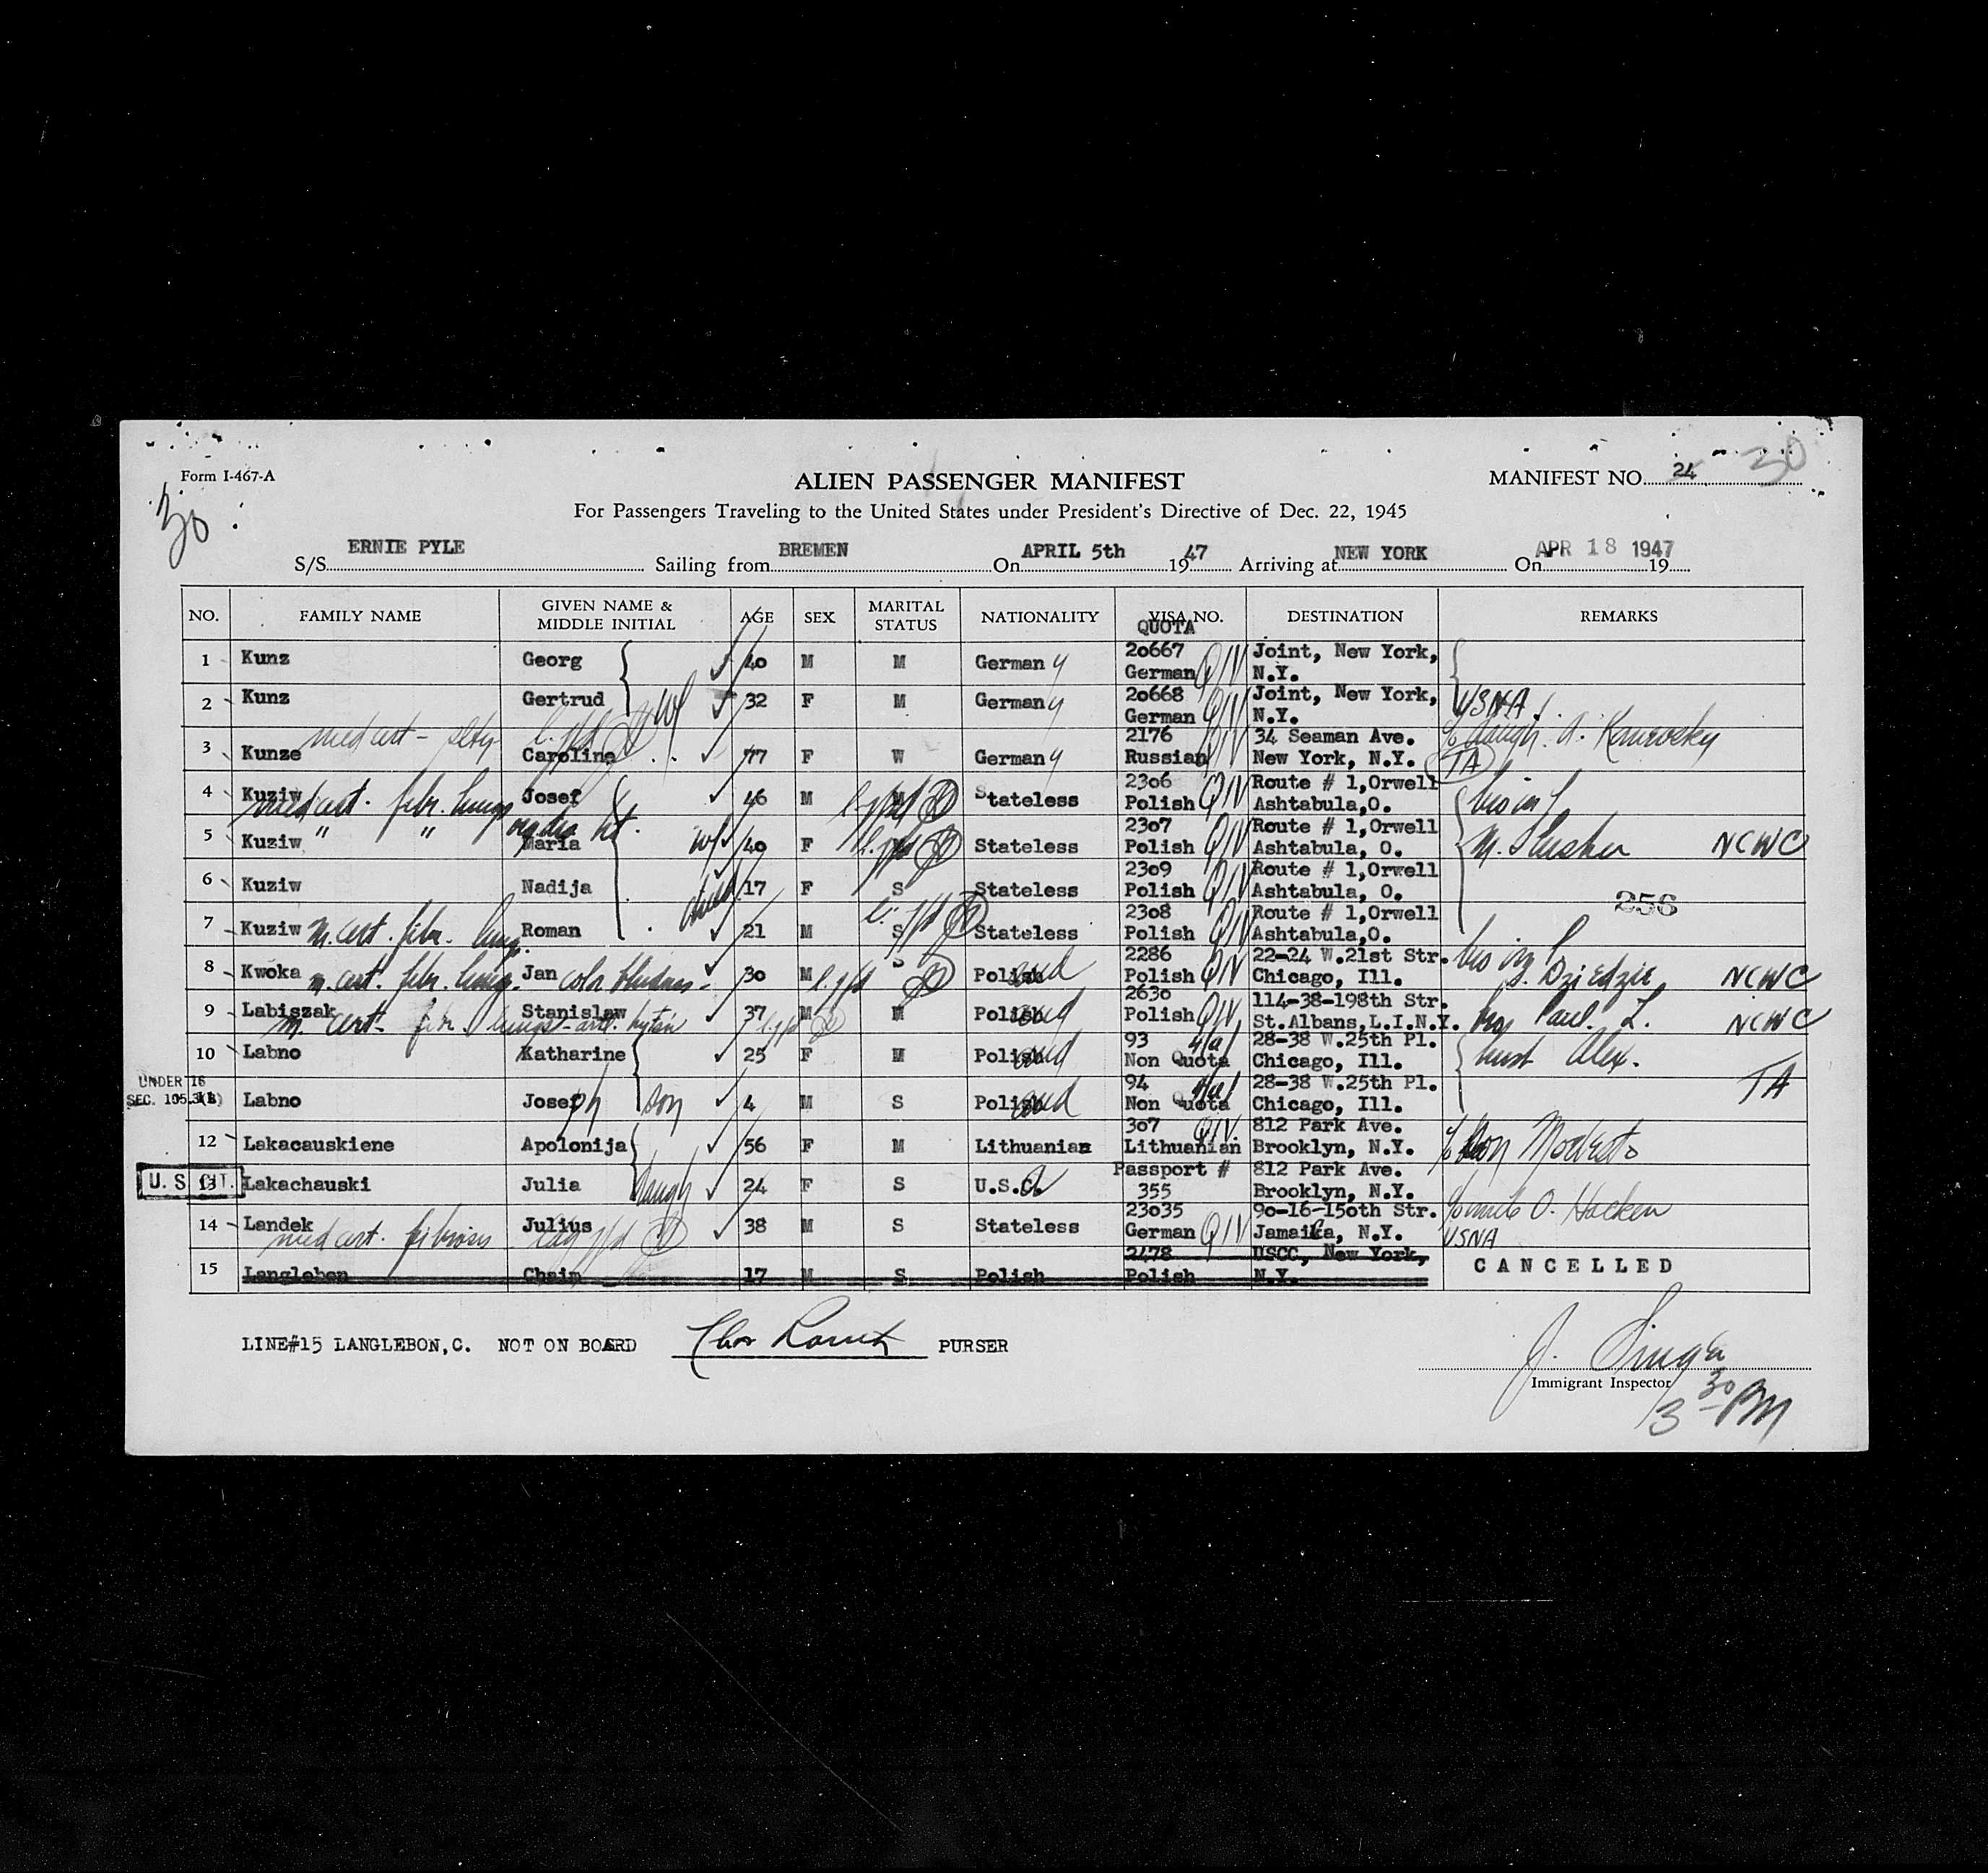 Form I-467-A
ALIEN PASSENGER MANIFEST
MANIFEST NO. 24 30
30
For Passengers Traveling to the United States under President's Directive of Dec. 22, 1945
S/S ERNIE PYLE Sailing from BREMEN On APRIL 5th 1947 Arriving at NEW YORK On APR 18 1947 19
NO. FAMILY NAME GIVEN NAME & MIDDLE INITIAL AGE SEX MARITAL STATUS NATIONALITY VISA NO. QUOTA DESTINATION REMARKS
1 Kunz Georg 40 M M Germany 20667 German QIV Joint, New York, N.Y.
2 Kunz Gertrud wf 32 F M Germany 20668 German QIV Joint, New York, N.Y. USNA
med cert -
3 Kunze Caroline 77 F W Germany 2176 Russian QIV 34 Seaman Ave. New York, N.Y. c/o daugh. A. Kanevsky TA
4 Kuziw Josef 46 M M Stateless 2306 Polish QIV Route # 1,Orwell Ashtabula,O.
med cert. fibr. lungs
5 Kuziw " " Maria wf 40 F Stateless 2307 Polish QIV Route # 1,Orwell Ashtabula, O. M. Slusher NCWC
6 Kuziw Nadija 17 F S Stateless 2309 Polish QIV Route # 1,Orwell Ashtabula, O. 256
7 Kuziw m. cert. fibr. lung. Roman 21 M S Stateless 2308 Polish QIV Route # 1,Orwell Ashtabula,O.
8 Kwoka m. cert. fibr. lung. Jan color blindness - 30 M S Poland 2286 Polish QIV 22-24 W.21st Str. Chicago, Ill. S. Dziedzic NCWC
9 Labiszak Stanislaw 37 M M Poland 2630 Polish QIV 114-38-198th Str. St.Albans,L.I.N.Y. bro Paul. L. NCWC
m. cert - fibr. lungs -
10 Labno Katharine 25 F M Poland 93 Non Quota 28-38 W.25th Pl. Chicago, Ill. husb Alex.
UNDER 16
SEC. 105.3(b) Labno Joseph son 4 M S Poland 94 Non Quota 28-38 W.25th Pl. Chicago, Ill. TA
12 Lakacauskiene Apolonija 56 F M Lithuanian 307 Lithuanian QIV 812 Park Ave. Brooklyn, N.Y. c/o son Modesto
U. S. CIT. 13 Lakachauski Julia daugh 24 F S U.S.A. Passport # 355 812 Park Ave. Brooklyn, N.Y.
14 Landek Julius 38 M S Stateless 23035 German QIV 90-16-150th Str. Jamaica, N.Y. c/o uncle O. Hacken USNA
med cert. fibrosis
15 Langlebon Chaim 17 M S Polish 2478 Polish USCC, New York, N.Y. CANCELLED
LINE#15 LANGLEBON,C. NOT ON BOARD PURSER
J. Singer
Immigrant Inspector
3 30 PM